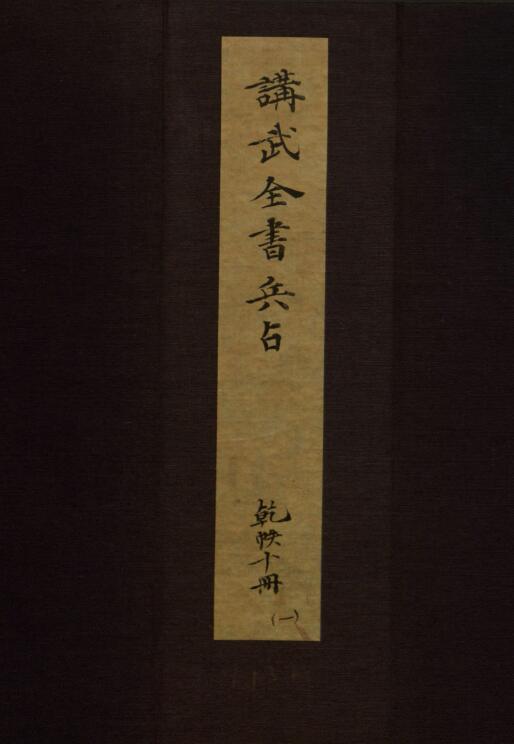 講武全書兵占
乾帙十冊
(一)